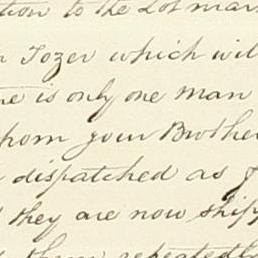 tion to the Lot mar
Tozer which wil
is only one man
hom your Brother
dispatched as f
they are now ship
them repeatedly